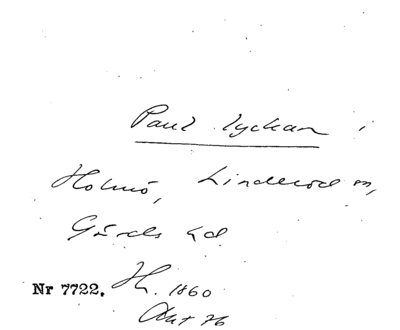 Paul Lyckan i
Holmö, Linderöd sn,
Gärds hd
Nr 7722. Hz. 1860
Okt 76